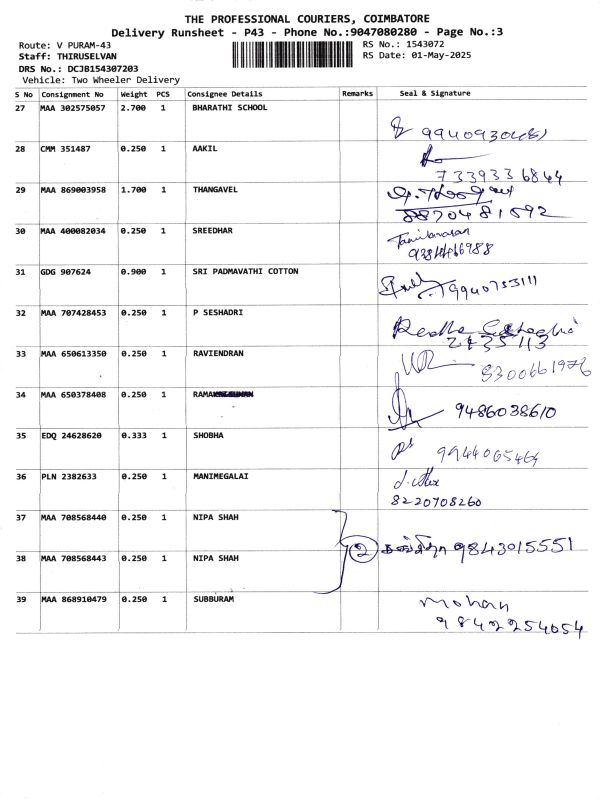 THE PROFESSIONAL COURIERS, COIMBATORE
Delivery Runsheet - P43 - Phone No.:9047080280 - Page No.:3
Route: V PURAM-43 RS No.: 1543072
Staff: THIRUSELVAN RS Date: 01-May-2025
DRS No.: DCJB154307203
Vehicle: Two Wheeler Delivery
S No Consignment No Weight PCS Consignee Details Remarks Seal & Signature
27 MAA 302575057 2.700 1 BHARATHI SCHOOL
28 CMM 351487 0.250 1 AAKIL
7339336844
29 MAA 869003958 1.700 1 THANGAVEL
8870481592
30 MAA 400082034 0.250 1 SREEDHAR
31 GDG 907624 0.900 1 SRI PADMAVATHI COTTON
9940753111
32 MAA 707428453 0.250 1 P SESHADRI
Radha
2435113
33 MAA 650613350 0.250 1 RAVIENDRAN
8300661976
34 MAA 650378408 0.250 1
9486038610
35 EDQ 24628620 0.333 1 SHOBHA
9944065464
36 PLN 2382633 0.250 1 MANIMEGALAI
8220708260
37 MAA 708568440 0.250 1 NIPA SHAH
2 9843015551
38 MAA 708568443 0.250 1 NIPA SHAH
39 MAA 868910479 0.250 1 SUBBURAM
mohan
9842254054